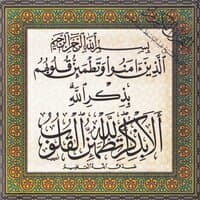 بسم الله الرحمن الرحيم
الذين ءامنوا وتطمئن قلوبهم
بذكر الله
ألا بذكر الله تطمئن القلوب